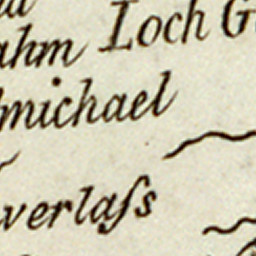 ahm Loch G
michael
verlaſs